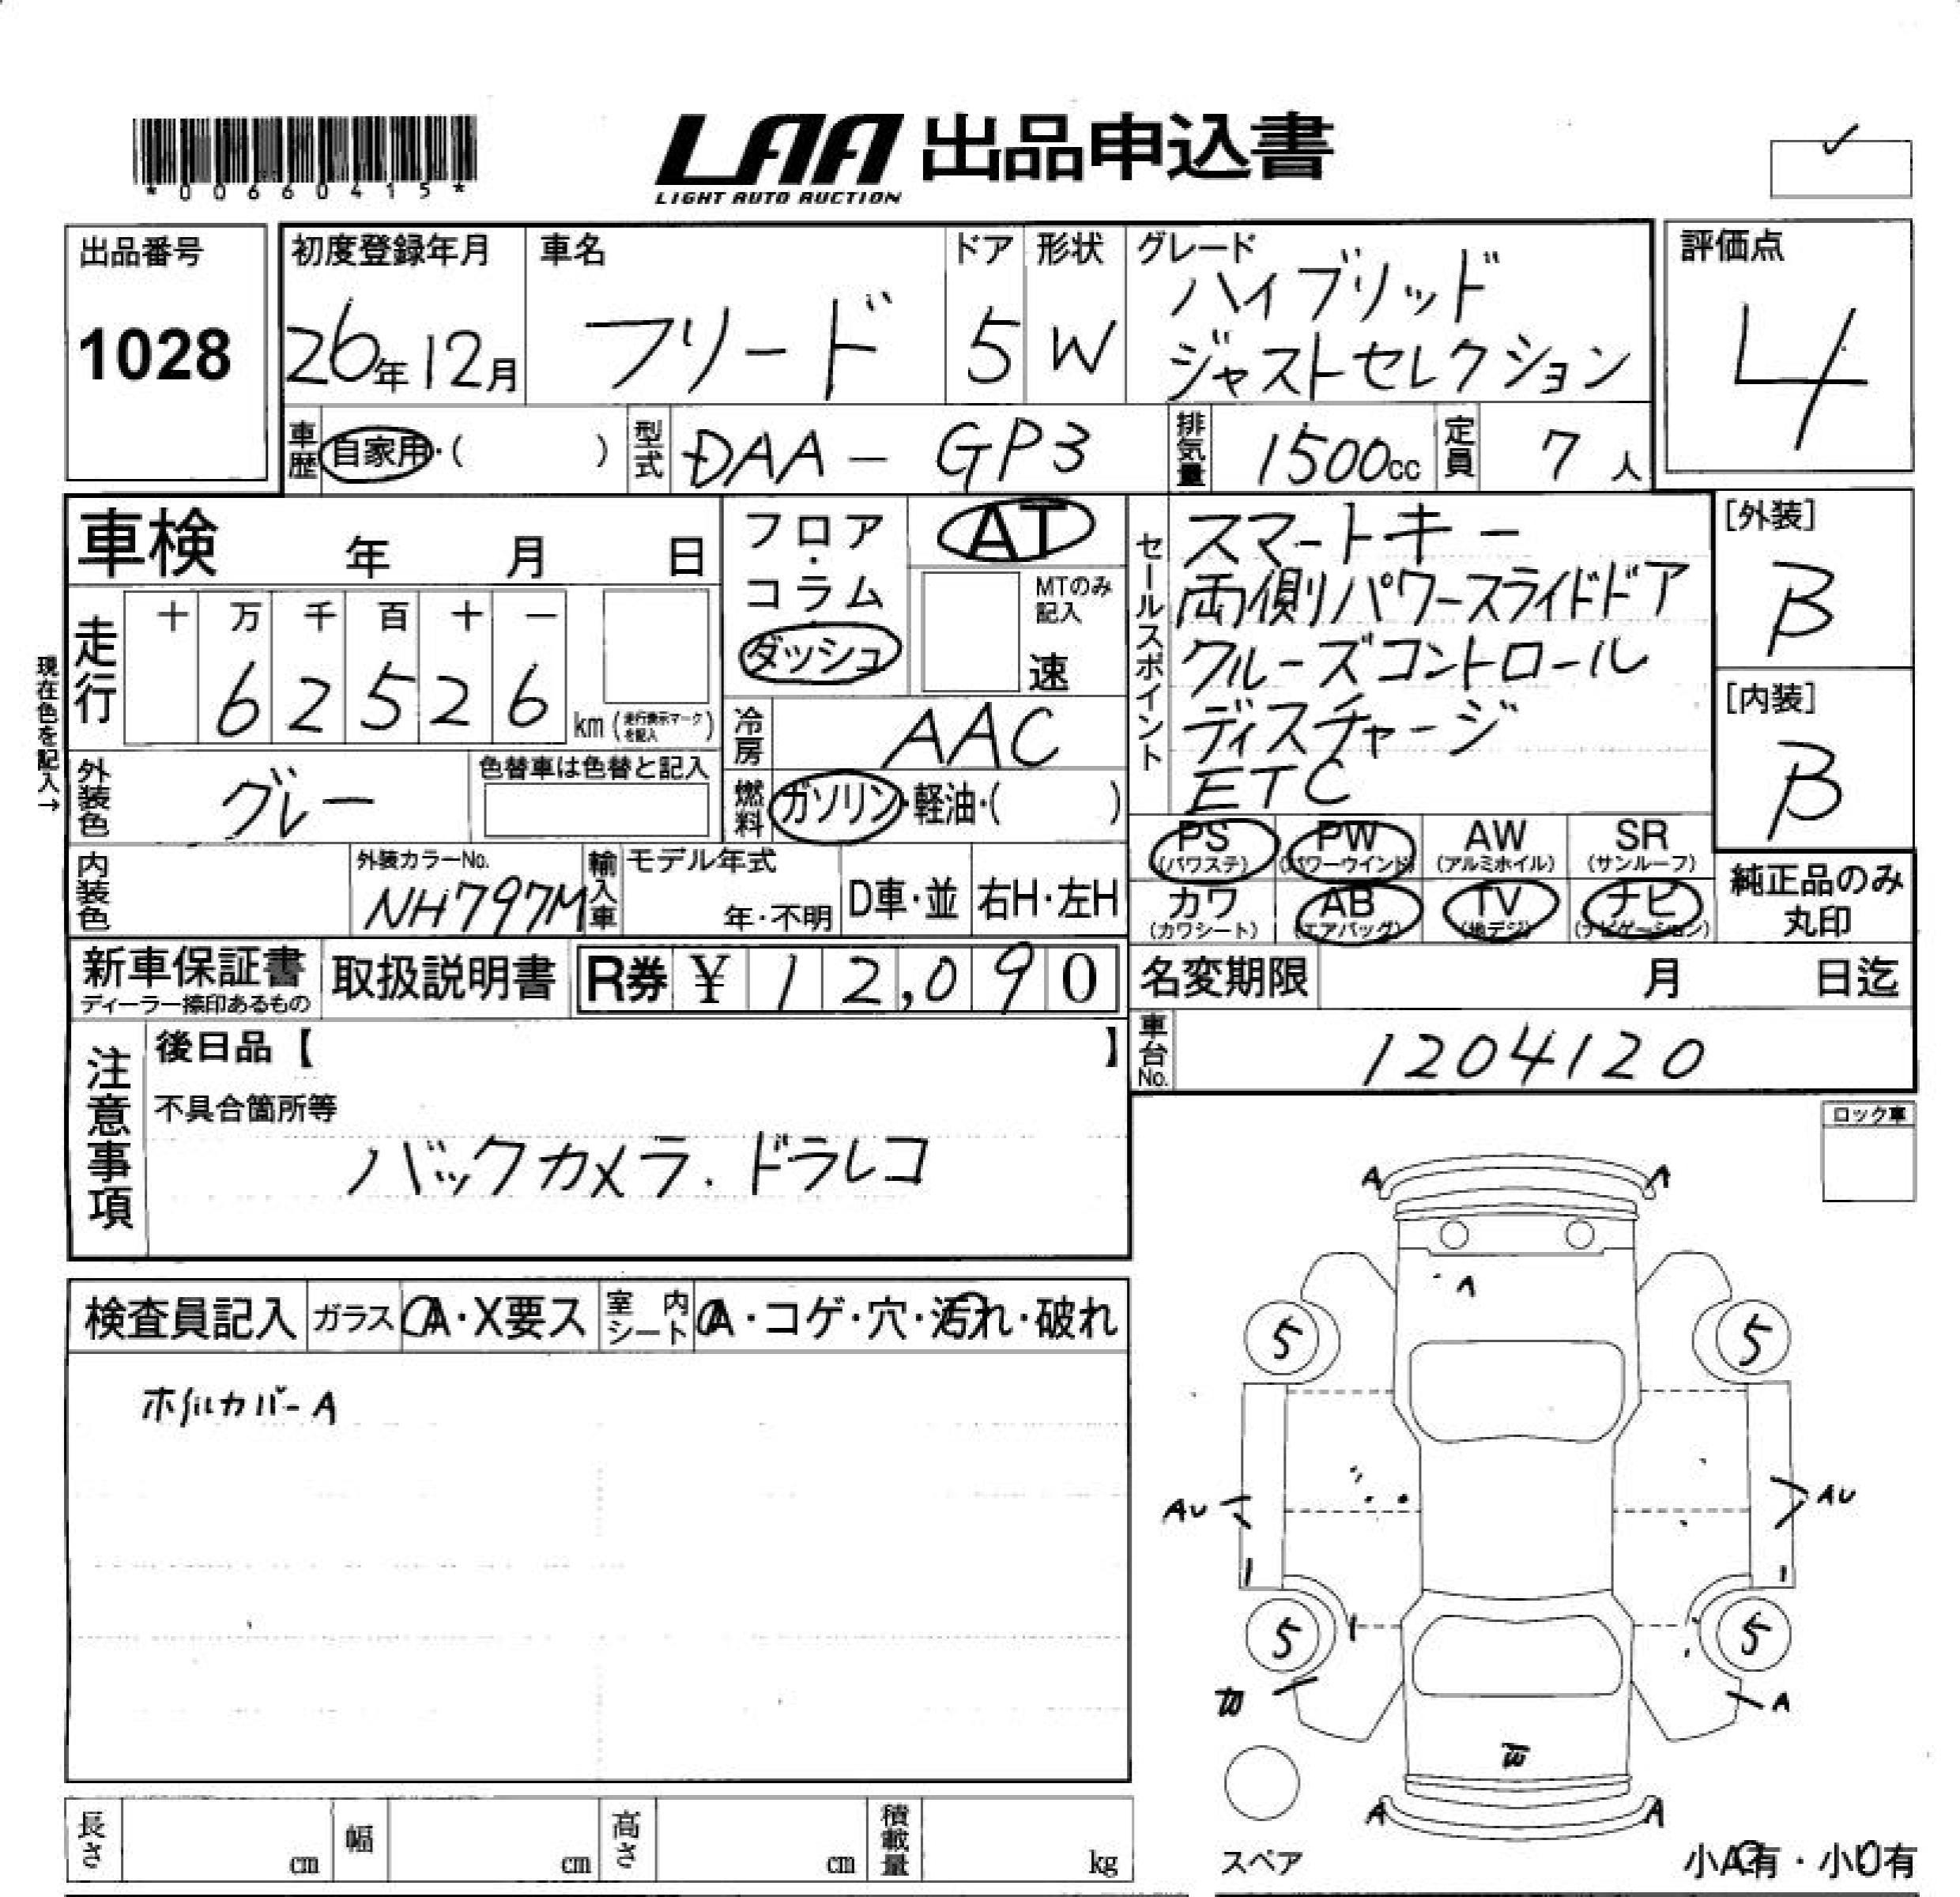 *00660415*
LAA 出品申込書
LIGHT AUTO AUCTION
出品番号
1028
初度登録年月
26年12月
車名
フリード
ドア
5
形状
W
グレード
ハイブリッド
ジャストセレクション
評価点
4
車歴
自家用・( )
型式
DAA-GP3
排気量
1500cc
定員
7人
車検 年 月 日
走行
十 万 千 百 十 一
6 2 5 2 6
km(走行表示マークを記入)
現在色を記入→
外装色
グレー
色替車は色替と記入
内装色
外装カラーNo.
NH797M
フロア・コラム・ダッシュ
AT
MTのみ記入
速
冷房
AAC
燃料
ガソリン・軽油・( )
輸入車
モデル年式
年・不明
D車・並
右H・左H
セールスポイント
スマートキー
両側パワースライドドア
クルーズコントロール
ディスチャージ
ETC
[外装]
B
[内装]
B
PS (パワステ)
PW (パワーウインド)
AW (アルミホイル)
SR (サンルーフ)
カワ (カワシート)
AB (エアバッグ)
TV (地デジ)
ナビ (ナビゲーション)
純正品のみ
丸印
新車保証書
ディーラー捺印あるもの
取扱説明書
R券 ¥ 12,090
名変期限 月 日迄
車台No.
1204120
注意事項
後日品【 】
不具合箇所等
バックカメラ.ドラレコ
ロック車
検査員記入
ガラス A・X要ス
室内シート A・コゲ・穴・汚れ・破れ
ホイルカバーA
A A
A
5 5
AU AU
5 5
A
A A
スペア
小A有・小U有
長さ cm
幅 cm
高さ cm
積載量 kg